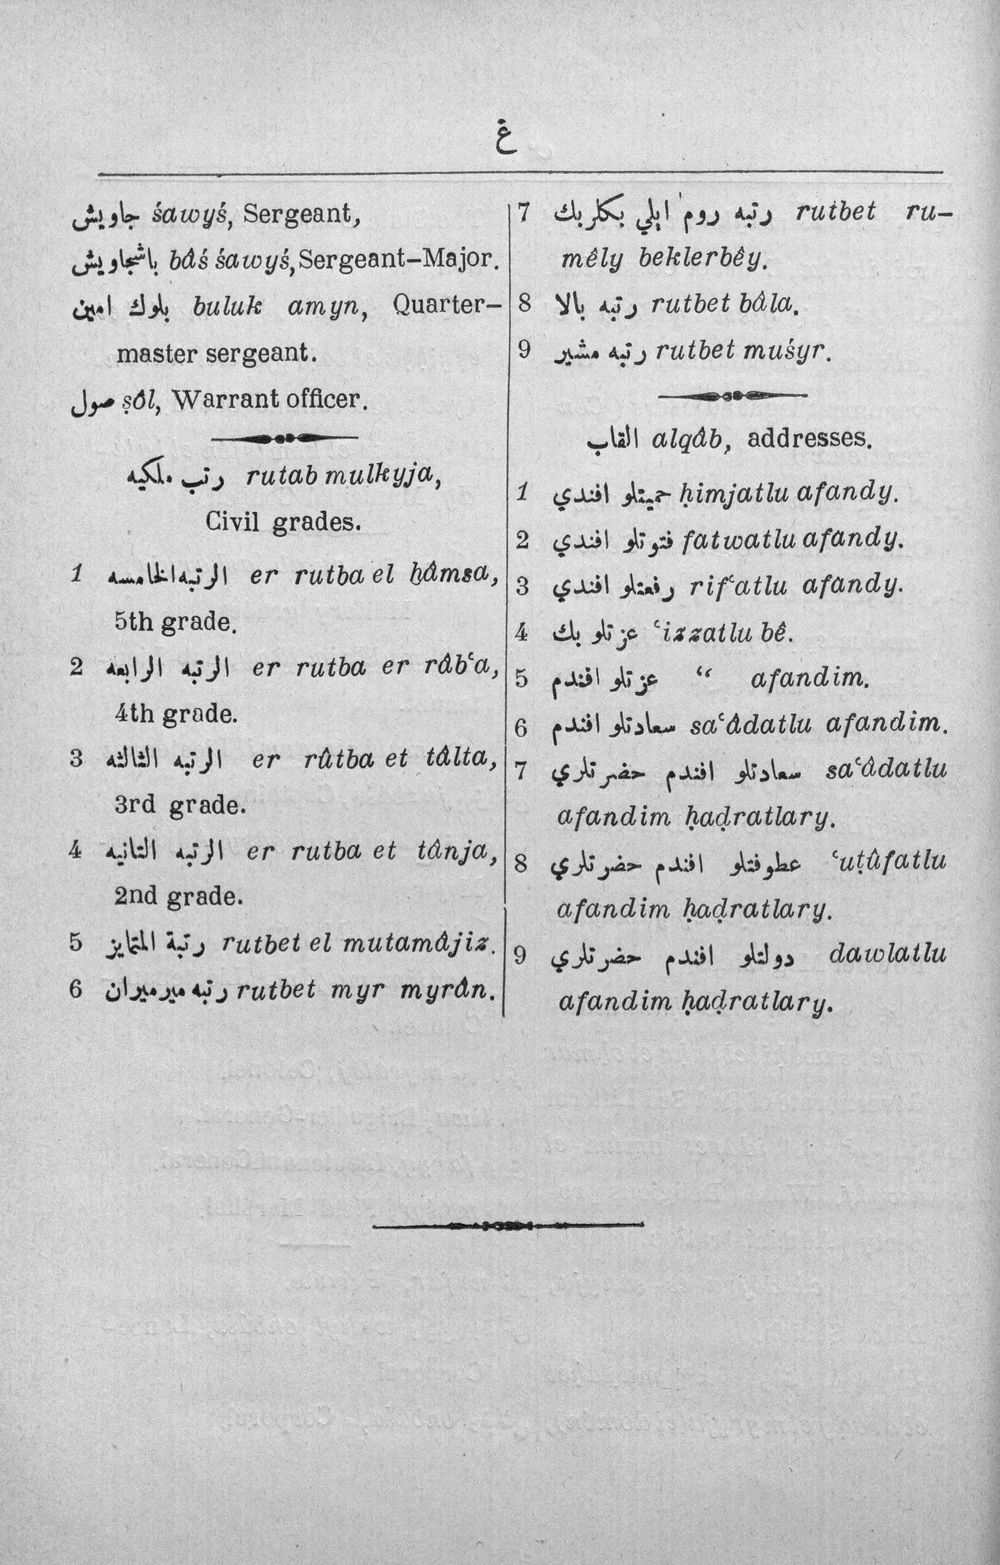 غ
جاويش śawyś, Sergeant,
باشجاويش bâś śawyś, Sergeant–Major.
بلوك امين buluk amyn, Quarter–
master sergeant.
صول ṣôl, Warrant officer.
رتب ملكيه rutab mulkyja,
Civil grades.
1 الرتبه الخامسه er rutba el ḫâmsa,
5th grade.
2 الرتبه الرابعه er rutba er râbʿa,
4th grade.
3 الرتبه الثالثه er rûtba et tâlta,
3rd grade.
4 الرتبه الثانيه er rutba et tânja,
2nd grade.
5 رتبة المتمايز rutbet el mutamâjiz.
6 رتبه ميرميران rutbet myr myrân.
7 رتبه روم ايلي بكلربك rutbet ru–
mêly beklerbêy.
8 رتبه بالا rutbet bâla.
9 رتبه مشير rutbet muśyr.
القاب alqâb, addresses.
1 حميتلو افندي ḥimjatlu afandy.
2 فتوتلو افندي fatwatlu afandy.
3 رفعتلو افندي rifʿatlu afandy.
4 عزتلو بك ʿizzatlu bê.
5 عزتلو افندم “ afandim.
6 سعادتلو افندم saʿâdatlu afandim.
7 سعادتلو افندم حضرتلري saʿâdatlu
afandim ḥaḍratlary.
8 عطوفتلو افندم حضرتلري ʿuṭûfatlu
afandim ḥaḍratlary.
9 دولتلو افندم حضرتلري dawlatlu
afandim ḥaḍratlary.